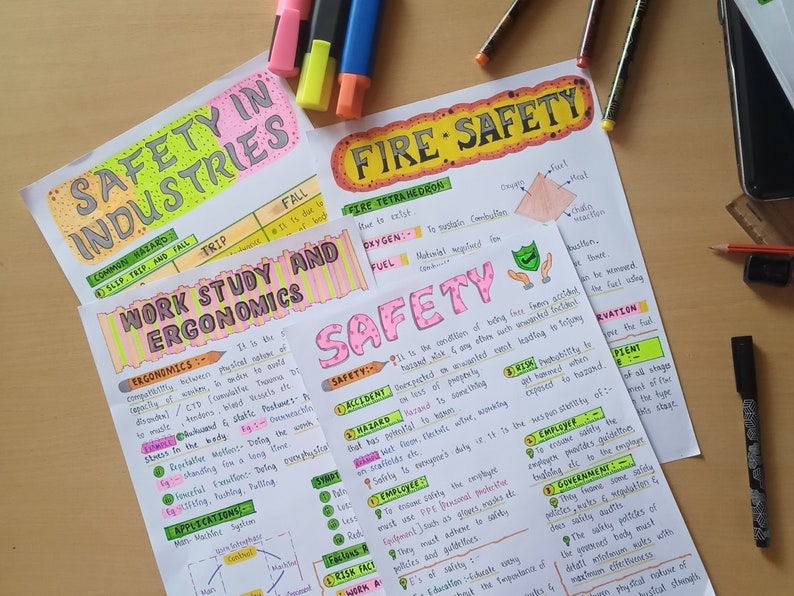 SAFETY IN
INDUSTRIES
COMMON HAZARD:-
① SLIP, TRIP, AND FALL
TRIP
FALL
It is due to
of body
FIRE SAFETY
FIRE TETRAHEDRON
to exist.
OXYGEN:- To sustain Combution
FUEL Material required for
Oxygen
Fuel
Heat
Chain
reaction
three.
can be removed.
the fuel using
the fuel.
of all stages
of fire
the type
this stage.
WORK STUDY AND
ERGONOMICS
ERGONOMICS:- It is the
compatibility between physical nature of
capacity of worker, in order to avoid
disorder) / CTD (Cumulative Trauma
to muscle, tendons, blood vessels etc.
EXAMPLE ① Awkward & Static Postures:-
stress in the body. Eg:-
ⅱ Repetative Motion:- Doing the work
Eg:- standing for a long time.
ⅲ Forceful Exertion:- Doing
Eg:- Lifting, Pushing, Pulling.
APPLICATIONS:-
Man Machine System
User Interphase
Control
Man
Machine
① RISK
SAFETY
SAFETY:- It is the condition of being free from accident,
hazard, risk & any other such unwanted incident
① ACCIDENT Unexpected or unwanted event leading to injury
or loss of property
② HAZARD Hazard is something
that has potential to harm
EXAMPLE Wet floor, Electric wire, working
on scaffolds etc.
③ RISK Probability to
get harmed when
exposed to hazard.
Safety is everyone's duty i.e. it is the responsibility of:-
① EMPLOYEE:-
To ensure safety the employee
must use PPE [Personal protective
Equipment] such as gloves, masks etc
They must adhere to safety
policies and guidelines.
E's of safety:-
Education:- Educate every
about the importance of
② EMPLOYER:-
To ensure safety the
employer provides guidelines,
training etc to the employee.
③ GOVERNMENT:-
They frame some safety
policies, rules & regulation &
does safety audits
The safety policies of
the governed body must
detail minimum rules with
maximum effectiveness
physical nature of
physical strength,